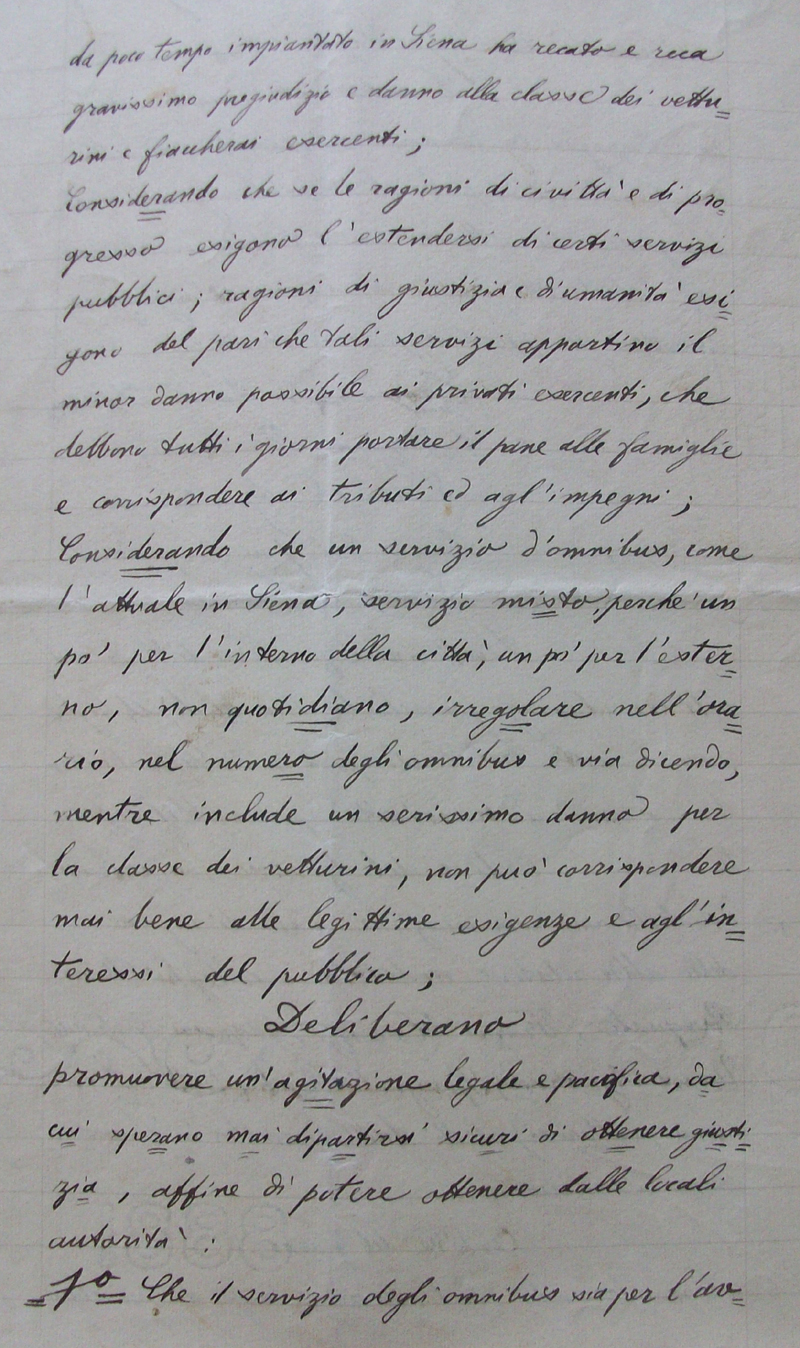 da poco tempo impiantato in Siena ha recato e reca
gravissimo pregiudizio e danno alla classe dei vettu=
rini e fiaccherai esercenti;
Considerando che se le ragioni di civiltà e di pro=
gresso esigono l'estendersi di certi servizi
pubblici; ragioni di giustizia e d'umanità esi=
gono del pari che tali servizi apportino il
minor danno possibile ai privati esercenti, che
debbono tutti i giorni portare il pane alle famiglie
e corrispondere ai tributi ed agl'impegni;
Considerando che un servizio d'omnibus, come
l'attuale in Siena, servizio misto, perché un
po' per l'interno della città, un po' per l'ester=
no, non quotidiano, irregolare nell'ora=
rio, nel numero degli omnibus e via dicendo,
mentre include un serissimo danno per
la classe dei vetturini, non può corrispondere
mai bene alle legittime esigenze e agl'in=
teressi del pubblico;
Deliberano
promuovere un'agitazione legale e pacifica, da
cui sperano mai dipartirsi sicuri di ottenere giusti=
zia, affine di potere ottenere dalle locali
autorità:
=1º= Che il servizio degli omnibus sia per l'av=